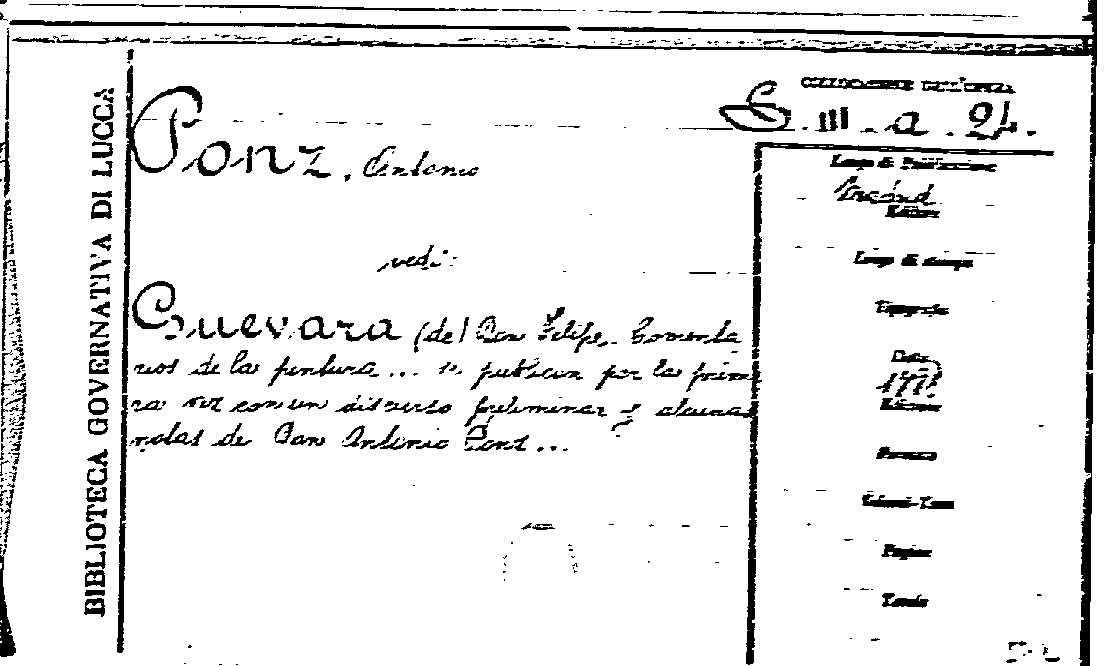 BIBLIOTECA GOVERNATIVA DI LUCCA
COLLOCAZIONE DELL'OPERA
S. III. a. 24.
Ponz, Antonio
vedi:
Guevara (de) Don Felipe. Comenta
rios de la pintura... se publican por la prime
ra vez con un discurso preliminar y algunas
notas de Don Antonio Ponz...
Luogo di Pubblicazione
Madrid
Editore
Luogo di stampa
Tipografia
Data
Edizione
Formato
Volumi-Tomi
Pagine
Tavole